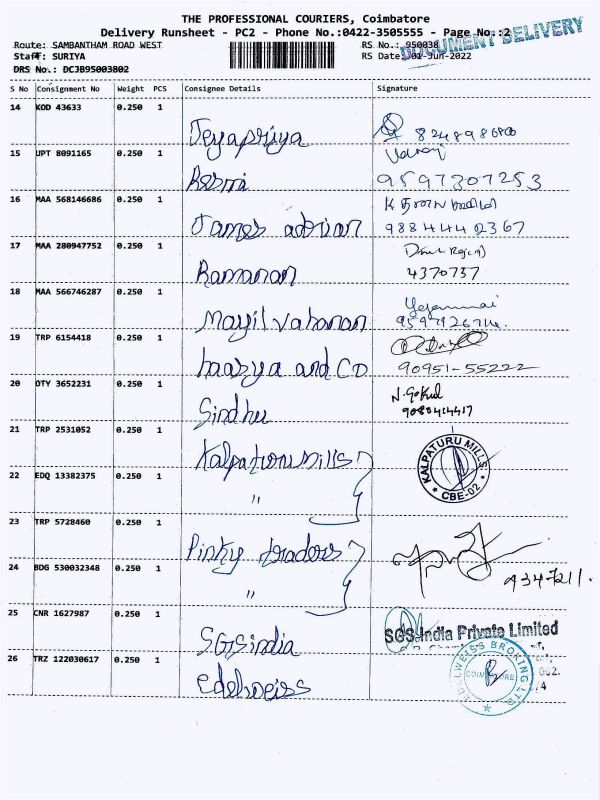 THE PROFESSIONAL COURIERS, Coimbatore
Delivery Runsheet - PC2 - Phone No.:0422-3505555 - Page No.:2
DOCUMENT DELIVERY
Route: SAMBANTHAM ROAD WEST
RS No.: 950038
Staff: SURIYA
RS Date: 01-Jun-2022
DRS No.: DCJB95003802
S No Consignment No Weight PCS Consignee Details Signature
14 KOD 43633 0.250 1
Jeyapriya
15 UPT 8091165 0.250 1
Resmi 9597307253
16 MAA 568146686 0.250 1
James adrian 9884442367
17 MAA 280947752 0.250 1
Ramanan 4370737
18 MAA 566746287 0.250 1
Mayil vahanan
19 TRP 6154418 0.250 1
haasya and CO 90951-55222
20 OTY 3652231 0.250 1
N. Gokul
Sindhu
21 TRP 2531052 0.250 1
Kalpaturu mills
KALPATURU MILLS
CBE-02
22 EDQ 13382375 0.250 1
"
23 TRP 5728460 0.250 1
Pinky traders
24 BDG 530032348 0.250 1
"
9347211.
25 CNR 1627987 0.250 1
SGS india
SGS India Private Limited
26 TRZ 122030617 0.250 1
edelweiss
EDELWEISS BROKING LTD
COIMBATORE